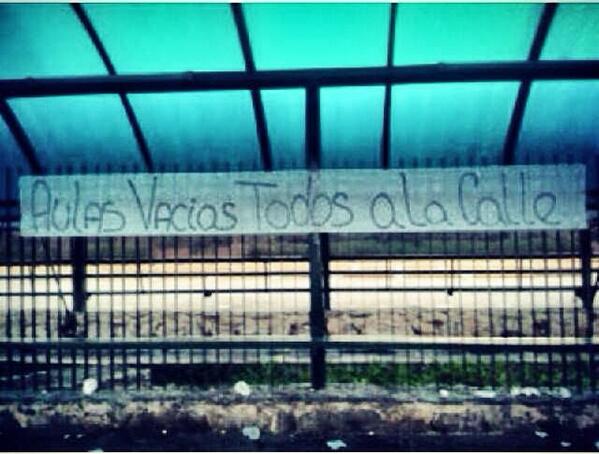 AULAS VACias Todos a la Calle